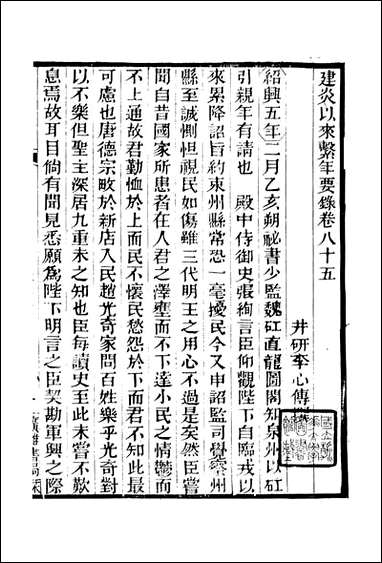 建炎以來繫年要錄卷八十五
井研李心傳撰
紹興五年二月乙亥朔祕書少監魏矼直龍圖閣知泉州以矼
引親年有請也 殿中侍御史張絢言臣仰觀陛下自臨戎以
來累降詔旨約束州縣常恐一毫擾民今又申詔監司覺察州
縣至誠惻怛視民如傷雖三代明王之用心不過是矣然臣嘗
聞自昔國家所患者在人君之澤壅而不下達小民之情鬱而
不上通故君勤恤於上而民不懷民愁怨於下而君不知此最
可慮也唐德宗畋於新店入民趙光奇家問百姓樂乎光奇對
以不樂但聖主深居九重未之知也臣每讀史至此未嘗不歎
息焉故耳目倘有聞見悉願為陛下明言之臣契勘軍興之際
廣雅書局栞